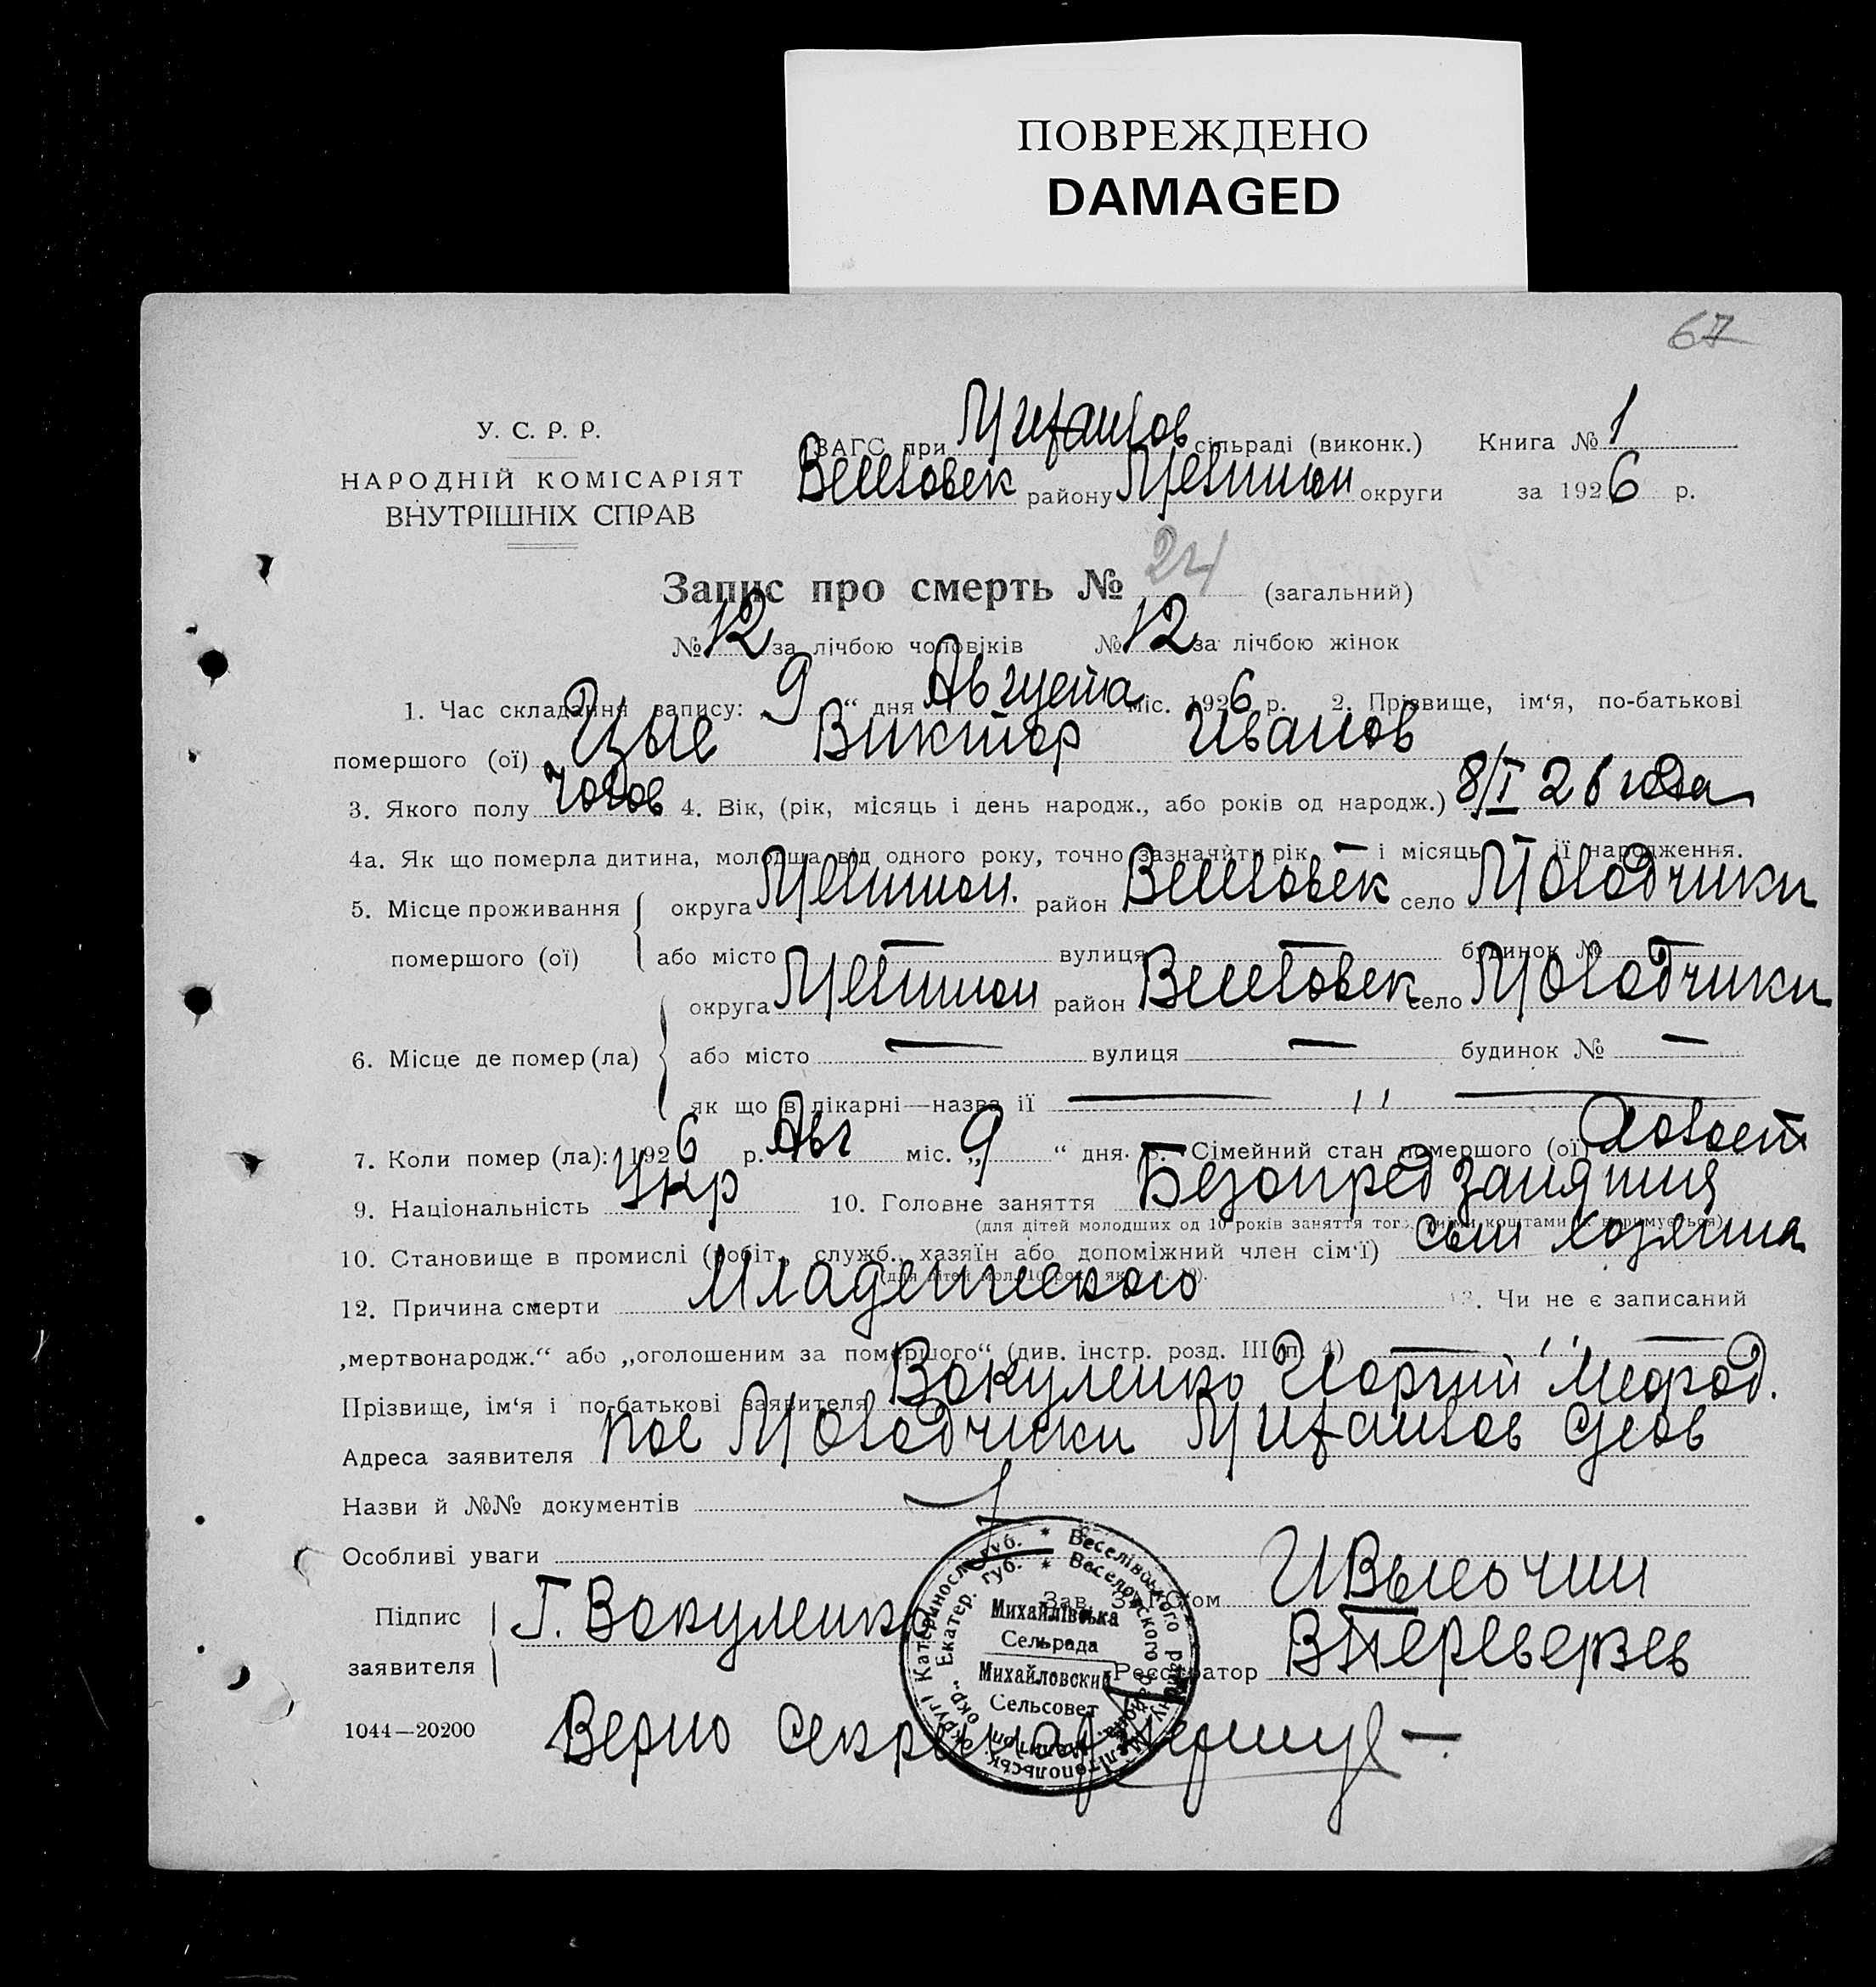 ПОВРЕЖДЕНО
DAMAGED
67
У. С. Р. Р.
НАРОДНІЙ КОМІСАРІЯТ
ВНУТРІШНІХ СПРАВ
ЗАГС при Михайлов сільраді (виконк.) Книга № 1
Веселовск району Мелитоп округи за 1926 р.
Запис про смерть № 24 (загальний)
№ 12 за лічбою чоловіків № 12 за лічбою жінок
1. Час складання запису: 9 “ дня Августа міс. 1926 р. 2. Прізвище, ім‘я, по-батькові
помершого (ої) Виктор Иванов
3. Якого полу 4. Вік, (рік, місяць і день народж., або років од народж.) 8/I 26 года
4а. Як що померла дитина, молодша від одного року, точно зазначити рік — і місяць — її народження.
5. Місце проживання округа Мелитоп. район Веселовск село Молодчики
помершого (ої) або місто — вулиця — будинок № —
округа Мелитоп район Веселовск село Молодчики
6. Місце де помер (ла) або місто — вулиця — будинок № —
як що в лікарні—назва ії — " —
7. Коли помер (ла): 1926 р. Авг міс. „9 “ дня. 8. Сімейний стан помершого (ої) Холост
9. Національність Укр 10. Головне заняття Безопред занятия
(для дітей молодших од 10 років заняття того, чиїми коштами утримується)
10. Становище в промислі (робіт., служб., хазяїн або допоміжний член сім‘ї) сын хозяина
12. Причина смерти Младенческого 13. Чи не є записаний
„мертвонародж.“ або „оголошеним за помершого“ (див. інстр. розд. III п. 4) — " —
Прізвище, ім‘я і по-батькові заявителя Вакуленко Меофод.
Адреса заявителя пос Молодчики Михайлов с/сов
Назви й №№ документів
Особливі уваги
Підпис заявителя Г. Вакуленко
Зав. ЗАГС‘ом
Реєстратор ВПереверзев
Михайлівська
Сельрада
Михайловский
Сельсовет
1044—20200
Верно Секретар